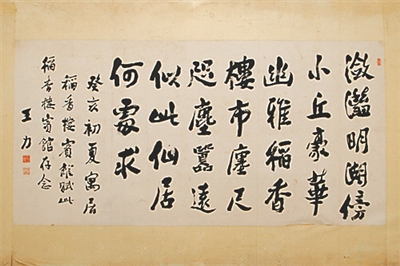 瀲灩明湖傍
小丘豪華
幽雅稻香
樓市廛尺
咫塵囂遠
似此仙居
何處求
癸亥初夏寓居
稻香樓賓館賦此
稻香樓賓館存念
王力